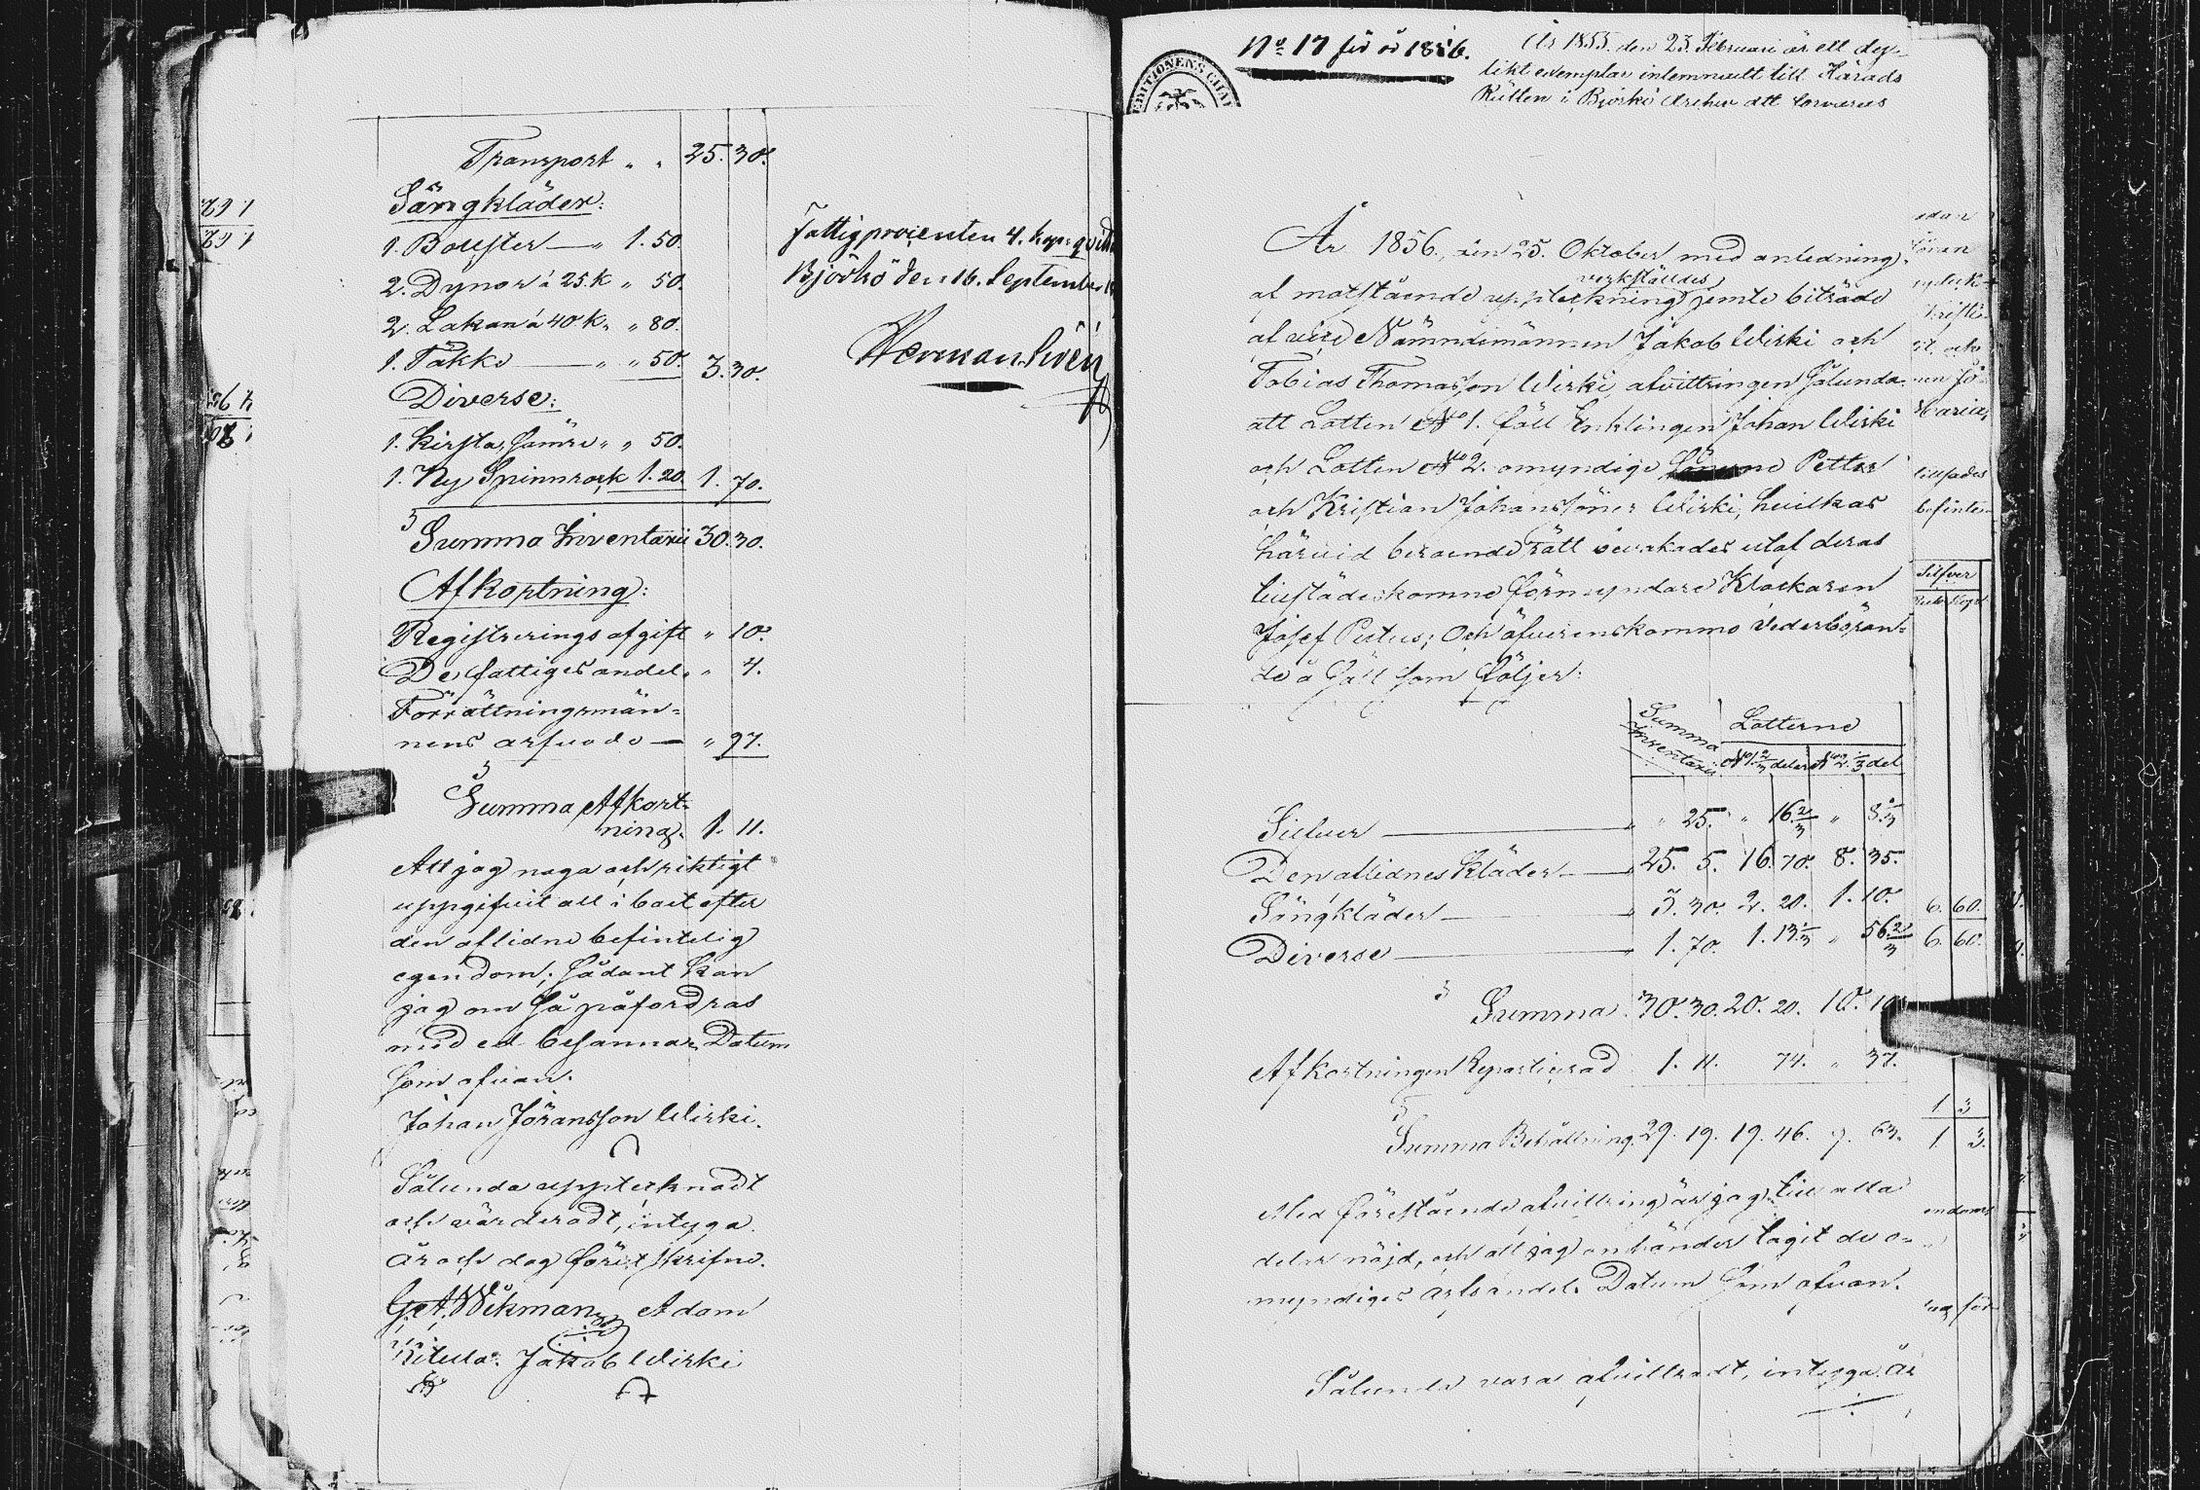 Transport " " 25. 30.
Sängkläder:
1. Bolster — " 1. 50.
2. Dynor á 25. K " 50.
2. Lakan á 40 K. " " 80.
1. Täkke — " " 50. 3. 30.
Diverse:
1. Kirsta, sämre " " 50.
1. Ny Spinnrock 1. 20. 1. 70.
Summa Inventarii 30. 30.
Afkortning:
Registrerings afgift " 10.
De fattiges andel " " 4.
Förrättningsmän-
nens arfvode — " 97.
Summa Afkort-
ning. 1. 11.
Att jag noga och riktigt
uppgifvit allt i boet efter
den aflidne befintelig
egendom; sådant kan
jag om så påfordras
med ed besanna. Datum
som ofvan.
Johan Jöransson Wirki.
Sålunda upptecknadt
och värderadt, intyga
År och dag förutskrifne.
G. A. Wikman Adam
Kitula. Jakob Wirki
Fattigprocenten 4. kop:
Björkö den 16. September
Herman
No 17 för år 1856.
År 1855. den 23. Februari är ett dup-
likt exemplar inlemnadt till Härads
Rätten i Björkö Archiv att förvaras
År 1856, den 25. Oktober med anledning
verkställdes
af motstående uppteckning jemte biträde
af Nämndemännen Jakob Wirki och
Tobias Thomasson Wirki, afvittringen Sålunda
att Lotten No 1. föll Enklingen Johan Wirki
och Lotten No 2. omyndige Petter
och Kristian Johanssöner Wirki, hvilkas
härvid beroende rätt bevakades utaf deras
tillstädeskomne förmyndare Klockaren
Josef Pietus; Och öfverenskommo Vederböran-
de å Sätt som följer:
Summa Inventarii Lotterne
No 1. 2/3 delar No 2. 1/3 del
Silfver — " 25. " 16 2/3 " 8 1/3
Den aflidnes Kläder — 25. 5. 16. 70. 8. 35.
Sängkläder — 3. 30. 2. 20. 1. 10.
Diverse — 1. 70. 1. 13 1/3 " 56 2/3
Summa 30. 30. 20. 20. 10. 10.
Afkortningen Reparterad 1. 11. 74. " 37.
Summa Behållning. 29. 19. 19. 46. 9. 63.
Med förestående afvittring är jag till alla
delar nöjd, och att jag omhänder tagit de o-
myndiges arfsandel. Datum som ofvan.
Sålunda vara afvittradt, intyga År
Silfver
6. 60.
6. 60.
1 3
1 3.